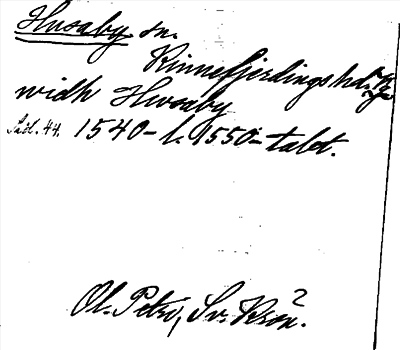 Husaby sn.
Kinnefjerdings hd.
widh Hwsaby
Säd. 44. 1540- l. 1550-talet.
Ol. Petri, Sv. Krön.